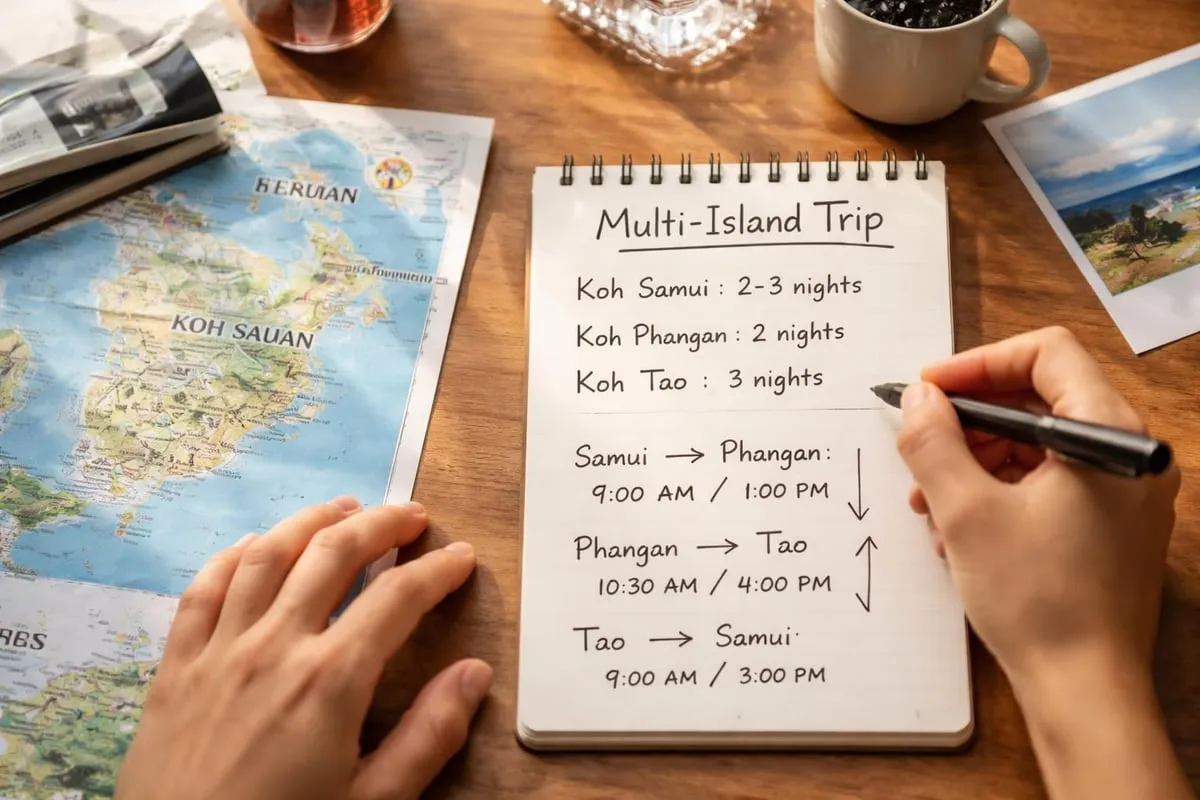 Multi-Island Trip
Koh Samui : 2-3 nights
Koh Phangan : 2 nights
Koh Tao : 3 nights
Samui → Phangan:
9:00 AM / 1:00 PM
Phangan → Tao
10:30 AM / 4:00 PM
Tao → Samui
9:00 AM / 3:00 PM
KOH SAUAN